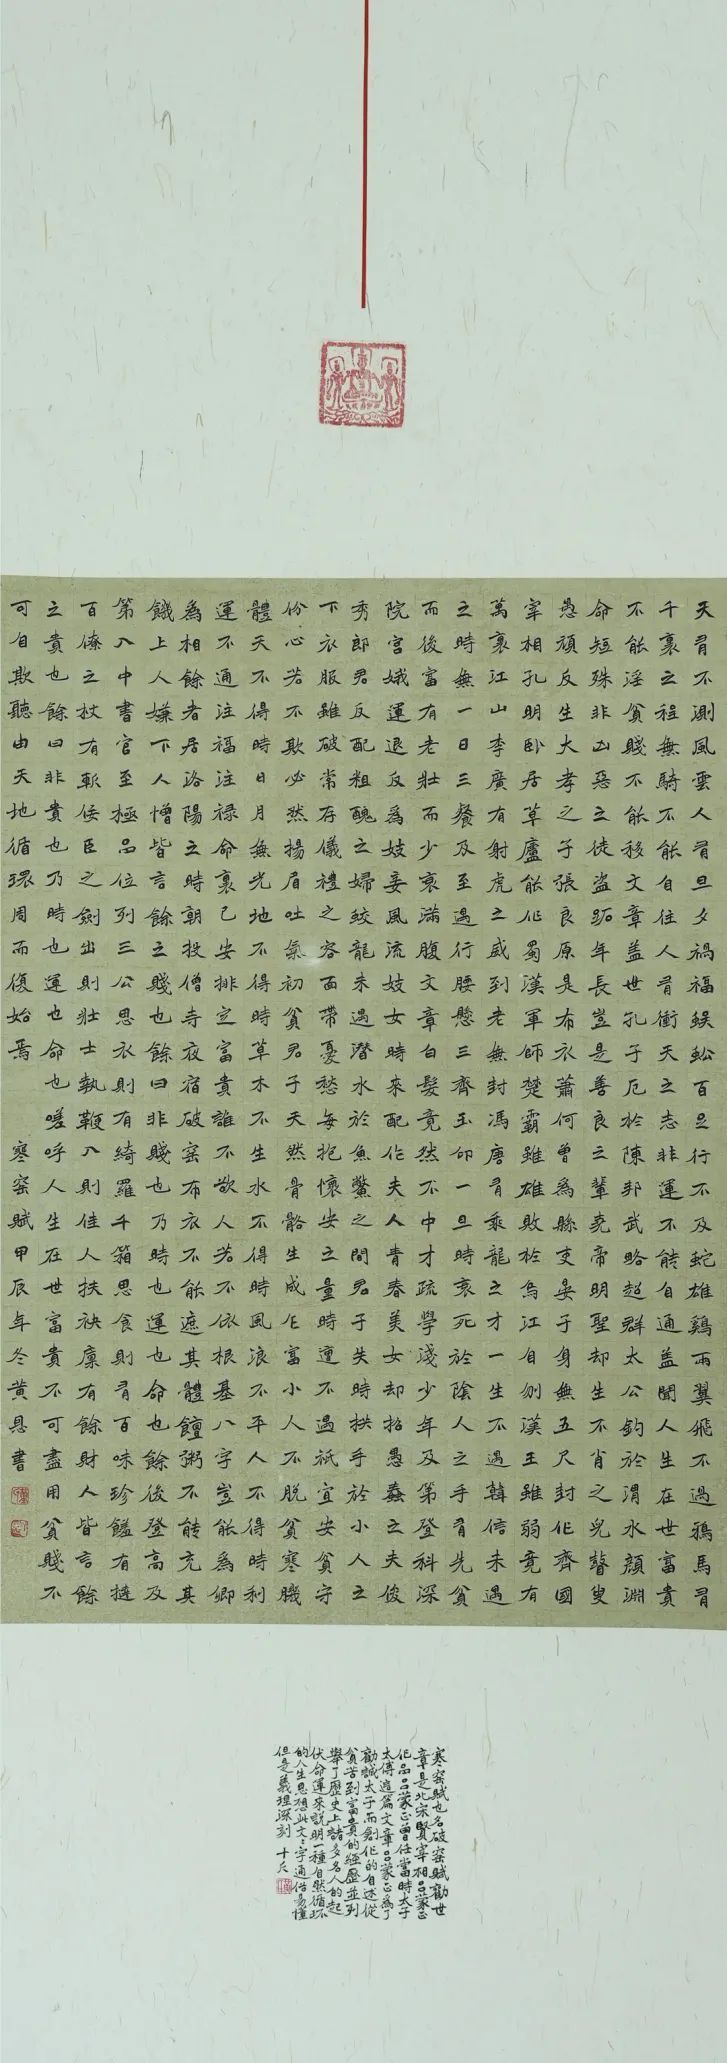 天有不測風雲人有旦夕禍福蜈蚣百足行不及蛇雄鷄兩翼飛不過鴉馬有
千裏之程無騎不能自往人有衝天之志非運不能自通蓋聞人生在世富貴
不能淫貧賤不能移文章蓋世孔子厄於陳邦武略超群太公釣於渭水顏淵
命短殊非凶惡之徒盗跖年長豈是善良之輩堯帝明聖却生不肖之兒瞽叟
愚頑反生大孝之子張良原是布衣蕭何曾為縣吏晏子身無五尺封作齊國
宰相孔明卧居草廬能作蜀漢軍師楚霸雖雄敗於烏江自刎漢王雖弱竟有
萬裏江山李廣有射虎之威到老無封馮唐有乘龍之才一生不遇韓信未遇
之時無一日三餐及至遇行腰懸三齊玉印一旦時衰死於陰人之手有先貧
而後富有老壯而少衰滿腹文章白髮竟然不中才疏學淺少年及第登科深
院宮娥運退反為妓妾風流妓女時來配作夫人青春美女却招愚蠢之夫俊
秀郎君反配粗醜之婦蛟龍未遇潜水於魚鱉之間君子失時拱手於小人之
下衣服雖破常存儀禮之容面帶憂愁每抱懷安之量時遭不遇祇宜安貧守
份心若不欺必然揚眉吐氣初貧君子天然骨骼生成乍富小人不脱貧寒肌
體天不得時日月無光地不得時草木不生水不得時風浪不平人不得時利
運不通注福注禄命裏已安排定富貴誰不欲人若不依根基八字豈能為卿
為相餘者居洛陽之時朝投僧寺夜宿破窑布衣不能遮其體饘粥不能充其
饑上人嫌下人憎皆言餘之賤也餘曰非賤也乃時也運也命也餘後登高及
第入中書官至極品位列三公思衣則有綺羅千箱思食則有百味珍饈有撻
百僚之杖有斬佞臣之劍出則壯士執鞭入則佳人扶袂廩有餘財人皆言餘
之貴也餘曰非貴也乃時也運也命也嗟呼人生在世富貴不可盡用貧賤不
可自欺聽由天地循環周而復始焉 寒窑賦甲辰年冬黄恩書
寒窑賦也名破窑賦勸世
章是北宋賢宰相吕蒙正
作品吕蒙正曾任當時太子
太傅這篇文章吕蒙正為了
勸誡太子而創作的自述從
貧苦到富貴的經歷並列
舉了歷史上諸多名人的起
伏命運來説明一種自然循環
的人生思想此文文字通俗易懂
但是義理深刻 十尺